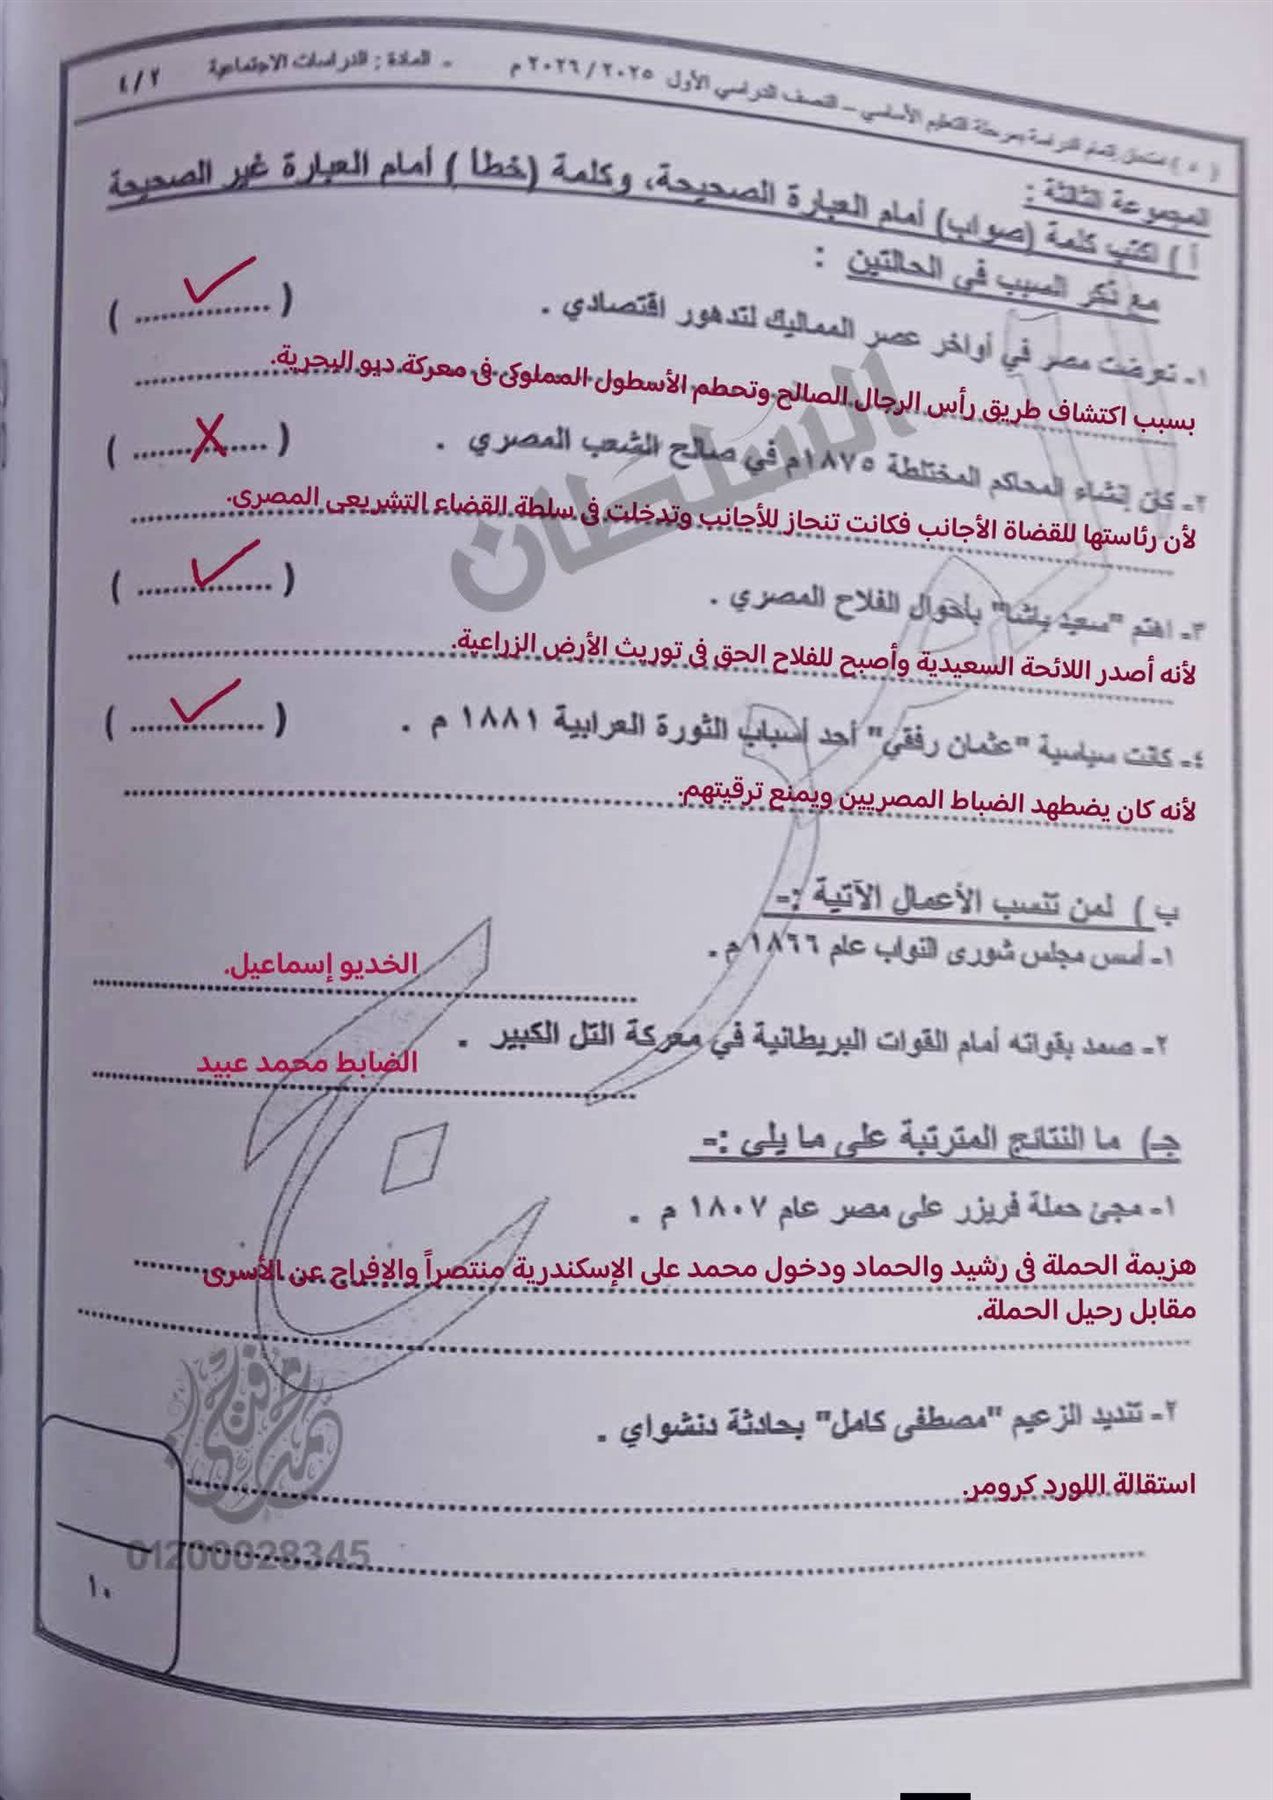 ( ٥ ) امتحان إتمام الدراسة بمرحلة التعليم الأساسي – النصف الدراسي الأول ٢٠٢٥ / ٢٠٢٦ م - المادة : الدراسات الاجتماعية ٤/٢
المجموعة الثالثة :
أ ) اكتب كلمة (صواب) أمام العبارة الصحيحة، وكلمة (خطأ ) أمام العبارة غير الصحيحة
مع ذكر السبب في الحالتين :
١- تعرضت مصر في أواخر عصر المماليك لتدهور اقتصادي . ( ✓ )
بسبب اكتشاف طريق رأس الرجال الصالح وتحطم الأسطول المملوكى فى معركة ديو البحرية.
٢- كان إنشاء المحاكم المختلطة ١٨٧٥م في صالح الشعب المصري . ( X )
لأن رئاستها للقضاة الأجانب فكانت تنحاز للأجانب وتدخلت فى سلطة القضاء التشريعى المصرى.
٣- اهتم "سعيد باشا" بأحوال الفلاح المصري . ( ✓ )
لأنه أصدر اللائحة السعيدية وأصبح للفلاح الحق فى توريث الأرض الزراعية.
٤- كانت سياسية "عثمان رفقي" أحد أسباب الثورة العرابية ١٨٨١ م . ( ✓ )
لأنه كان يضطهد الضباط المصريين ويمنع ترقيتهم.
ب ) لمن تنسب الأعمال الآتية :-
١- أسس مجلس شورى النواب عام ١٨٦٦ م .
الخديو إسماعيل.
٢- صمد بقواته أمام القوات البريطانية في معركة التل الكبير .
الضابط محمد عبيد
جـ) ما النتائج المترتبة على ما يلى :-
١- مجئ حملة فريزر على مصر عام ١٨٠٧ م .
هزيمة الحملة فى رشيد والحماد ودخول محمد على الإسكندرية منتصراً والإفراج عن الأسرى
مقابل رحيل الحملة.
٢- تنديد الزعيم "مصطفى كامل" بحادثة دنشواي .
استقالة اللورد كرومر.
السلطان
01200028345
١٠